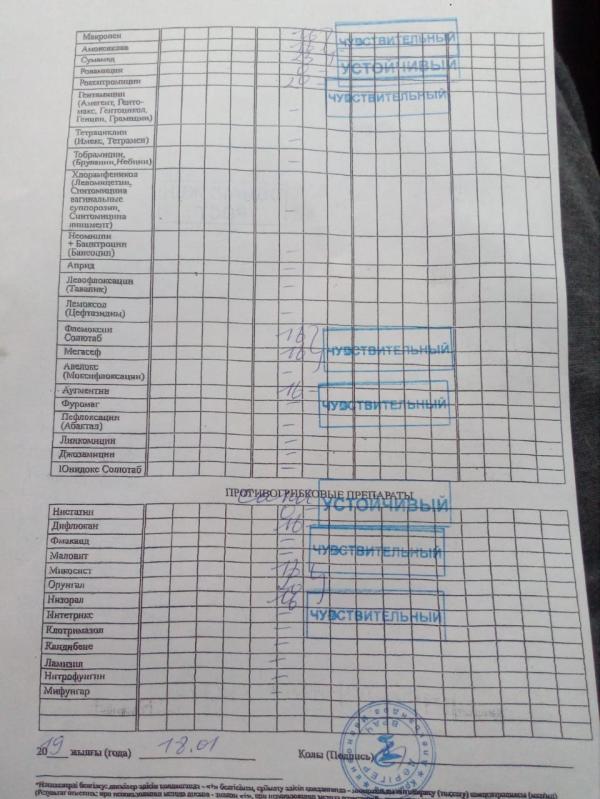 Макропен 16
Амоксиклав 16 ЧУВСТВИТЕЛЬНЫЙ
Сумамед 23
Ровамицин 0 УСТОЙЧИВЫЙ
Рокситромицин 20 ЧУВСТВИТЕЛЬНЫЙ
Гентамицин –
(Амегент, Генто-
макс, Гентоцикол,
Генцин, Грамицин)
Тетрациклин –
(Имекс, Тетрамен)
Тобрамицин, –
(Бруламин,Небцин)
Хлорамфеникол –
(Левомицетин,
Синтомицина
вагинальные
суппорозии,
Синтомицина
линимент)
Неомицин –
+ Бацитроцин
(Банеоцин)
Априд –
Левофлоксацин –
(Таваник)
Лемоксол –
(Цефтазидим)
Флемоксин 16
Солютаб ЧУВСТВИТЕЛЬНЫЙ
Мегасеф 16
Авелокс –
(Моксифлоксацин)
Аугментин 16 ЧУВСТВИТЕЛЬНЫЙ
Фуромаг –
Пефлоксацин –
(Абактал)
Линкомицин –
Джозамицин –
Юнидокс Солютаб –
ПРОТИВОГРИБКОВЫЕ ПРЕПАРАТЫ
Нистатин 0 УСТОЙЧИВЫЙ
Дифлюкан 16
Фмакнид – ЧУВСТВИТЕЛЬНЫЙ
Маловит –
Микосист
Орунгал
Низорал 18 ЧУВСТВИТЕЛЬНЫЙ
Интетрикс –
Клотримазол –
Кандибене –
Ламизил –
Нитрофунгин –
Мифунгар –
2019 жылғы (года) 18.01 Қолы (Подпись)
ВРАЧ
ДӘРІГЕР